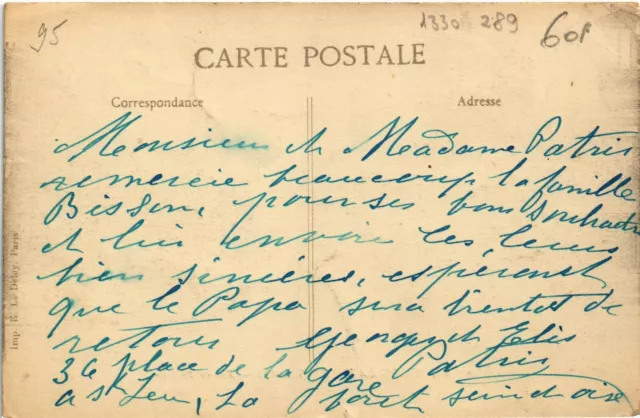 95
1330 289
60f
CARTE POSTALE
Correspondance
Adresse
Monsieur et Madame Patris
remercie beaucoup la famille
Bisson, pour ses bons souhaits
et lui envoie les leurs
bien sincères, espérant
que le Papa sera bientot de
retour Georges et
Patris
36 place de la gare
a St Leu, La foret seine et oise
Imp. E. Le Deley, Paris